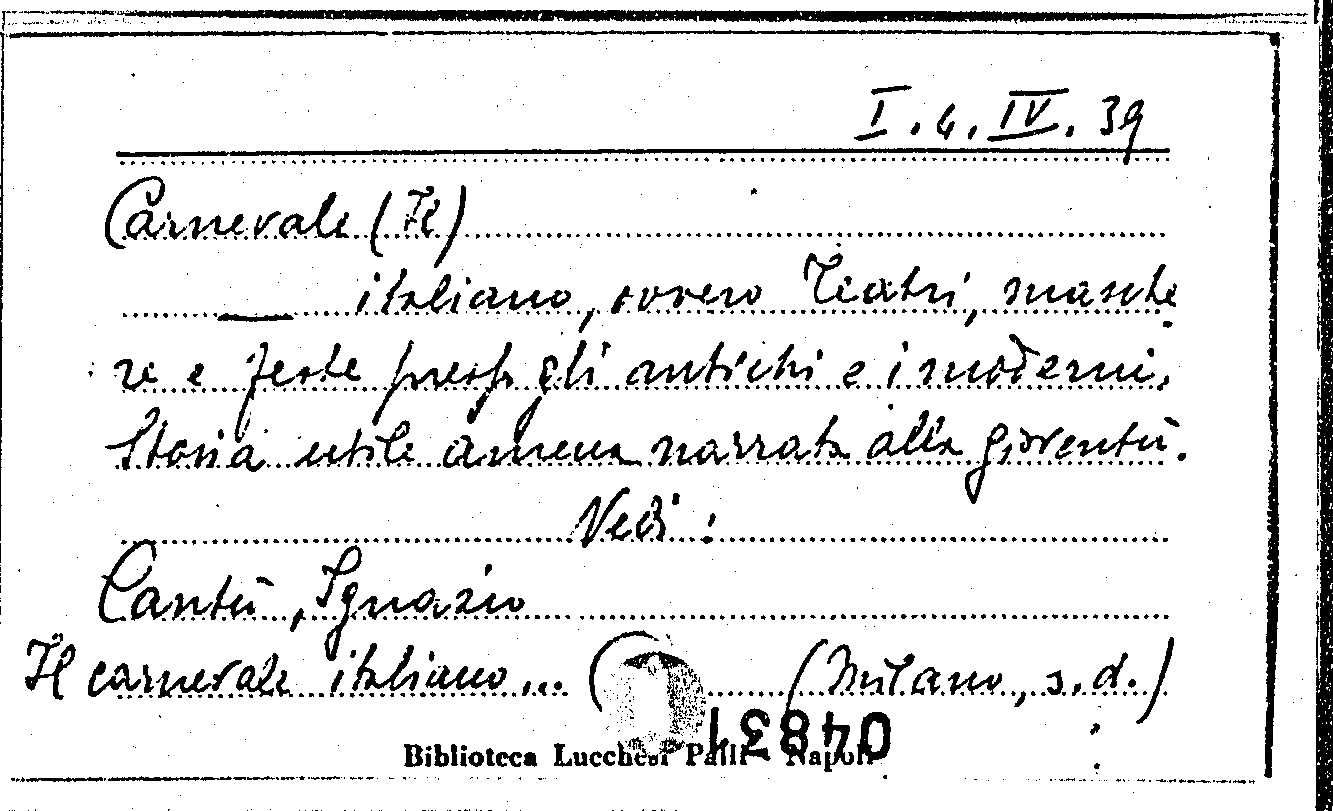 I.4.IV.39
Carnevale (Il)
___ italiano, ovvero Teatri, masche
re e feste presso gli antichi e i moderni.
Storia utile amena narrata alla gioventù.
Vedi:
Cantù, Ignazio
Il carnevale italiano... ( (Milano, s.d.)
04831
Biblioteca Lucchesi Palli - Napoli